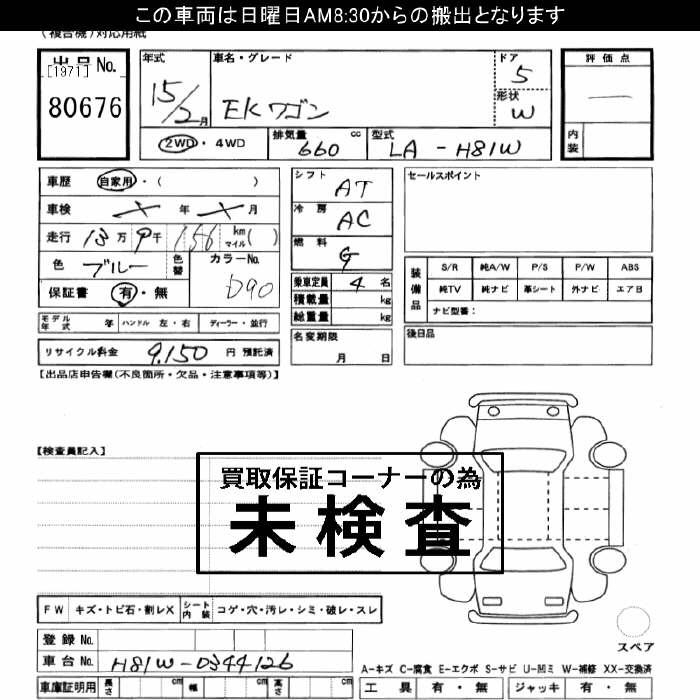 この車両は日曜日AM8:30からの搬出となります
(複合機)対応用紙
出品No.
[1971]
80676
年式
15/2月
車名・グレード
EKワゴン
ドア
5
形状
W
2WD・4WD
排気量
660 cc
型式
LA-H81W
評価点
—
内装
車歴 自家用・( )
車検 メ 年 メ 月
走行 13万 9千 156 km マイル( )
色 ブルー 色替 カラーNo.
D90
保証書 有・無
シフト AT
冷房 AC
燃料 G
乗車定員 4 名
積載量 kg
総重量 kg
セールスポイント
装備品
S/R 純A/W P/S P/W ABS
純TV 純ナビ 革シート 外ナビ エアB
ナビ型番:
モデル年式 年 ハンドル 左・右 ディーラー・並行
リサイクル料金 9,150 円 預託済
名変期限
月 日
後日品
【出品店申告欄(不良箇所・欠品・注意事項等)】
【検査員記入】
買取保証コーナーの為
未検査
FW キズ・トビ石・割レX シート内装 コゲ・穴・汚レ・シミ・破レ・スレ
登録No.
車台No. H81W-0344126
車庫証明用 長さ cm 幅 cm 高さ cm
スペア
A-キズ C-腐食 E-エクボ S-サビ U-凹ミ W-補修 XX-交換済
工具 有・無 ジャッキ 有・無